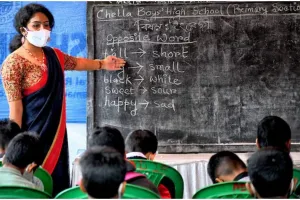 Chetla Boys' High School (Primary Section)
Opposite Word
tall → short
→ small
black → white
sweet → sour
happy → sad